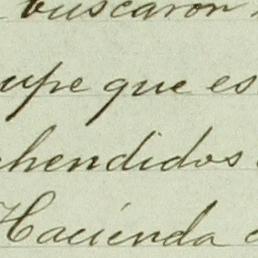 buscaron
upe que es
hendidos
Hacienda